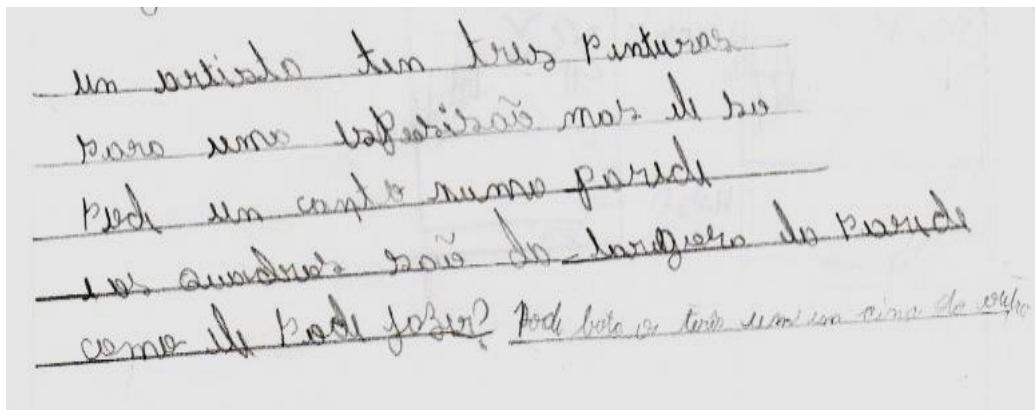 um artista tem três pinturas
para uma espesisão mas ele so
pode um canto numa parede
e os quadros são da largura da parede
como ele pode fazer? Pode bota os três um em cima do outro